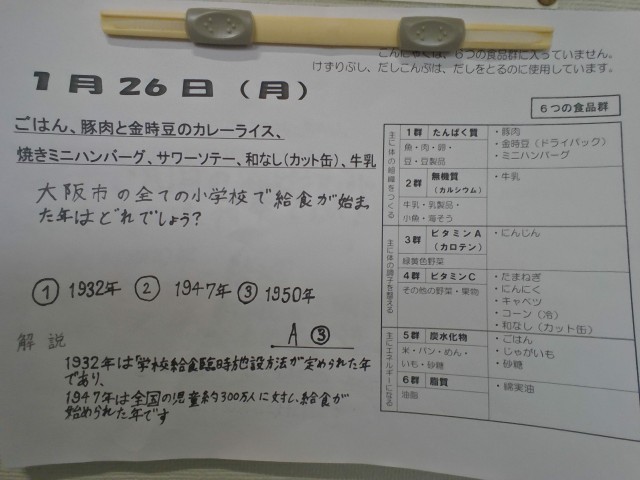 こんにゃくは、6つの食品群に入っていません。
けずりぶし、だしこんぶは、だしをとるのに使用しています。
1月26日(月)
ごはん、豚肉と金時豆のカレーライス、
焼きミニハンバーグ、サワーソテー、和なし(カット缶)、牛乳
大阪市の全ての小学校で給食が始まっ
た年はどれでしょう?
① 1932年 ② 1947年 ③ 1950年
A ③
解説
1932年は「学校給食臨時施設方法が定められた年
であり、
1947年は全国の児童約300万人に対し、給食が
始められた年です
6つの食品群
主に体の組織をつくる
1群 たんぱく質
魚・肉・卵・
豆・豆製品
・豚肉
・金時豆(ドライパック)
・ミニハンバーグ
2群 無機質
(カルシウム)
牛乳・乳製品・
小魚・海そう
・牛乳
主に体の調子を整える
3群 ビタミンA
(カロテン)
緑黄色野菜
・にんじん
4群 ビタミンC
その他の野菜・果物
・たまねぎ
・にんにく
・キャベツ
・コーン(冷)
・和なし(カット缶)
主にエネルギーになる
5群 炭水化物
米・パン・めん・
いも・砂糖
・ごはん
・じゃがいも
・砂糖
6群 脂質
油脂
・綿実油